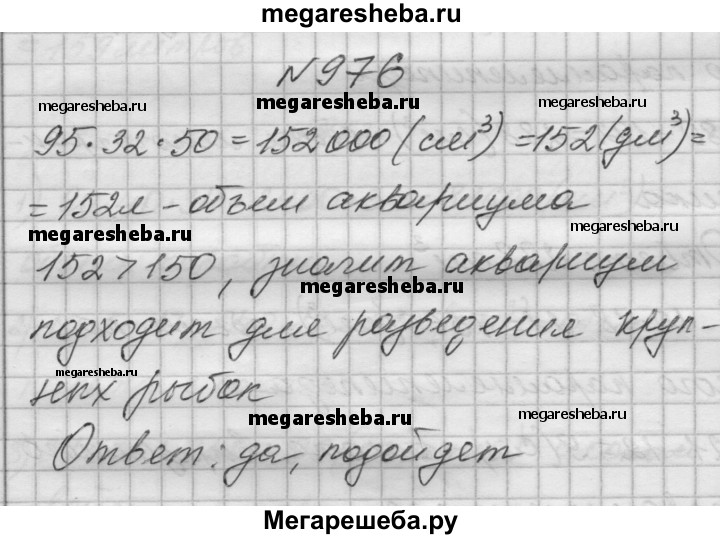 megaresheba.ru
№976
megaresheba.ru megaresheba.ru megaresheba.ru
95·32·50=152000(см³)=152(дм³)=
=152л-объем аквариума
megaresheba.ru megaresheba.ru
152>150, значит аквариум
megaresheba.ru
подходит для разведения круп-
megaresheba.ru
ных рыбок
megaresheba.ru megaresheba.ru
Ответ: да, подойдет
Мегарешеба.ру